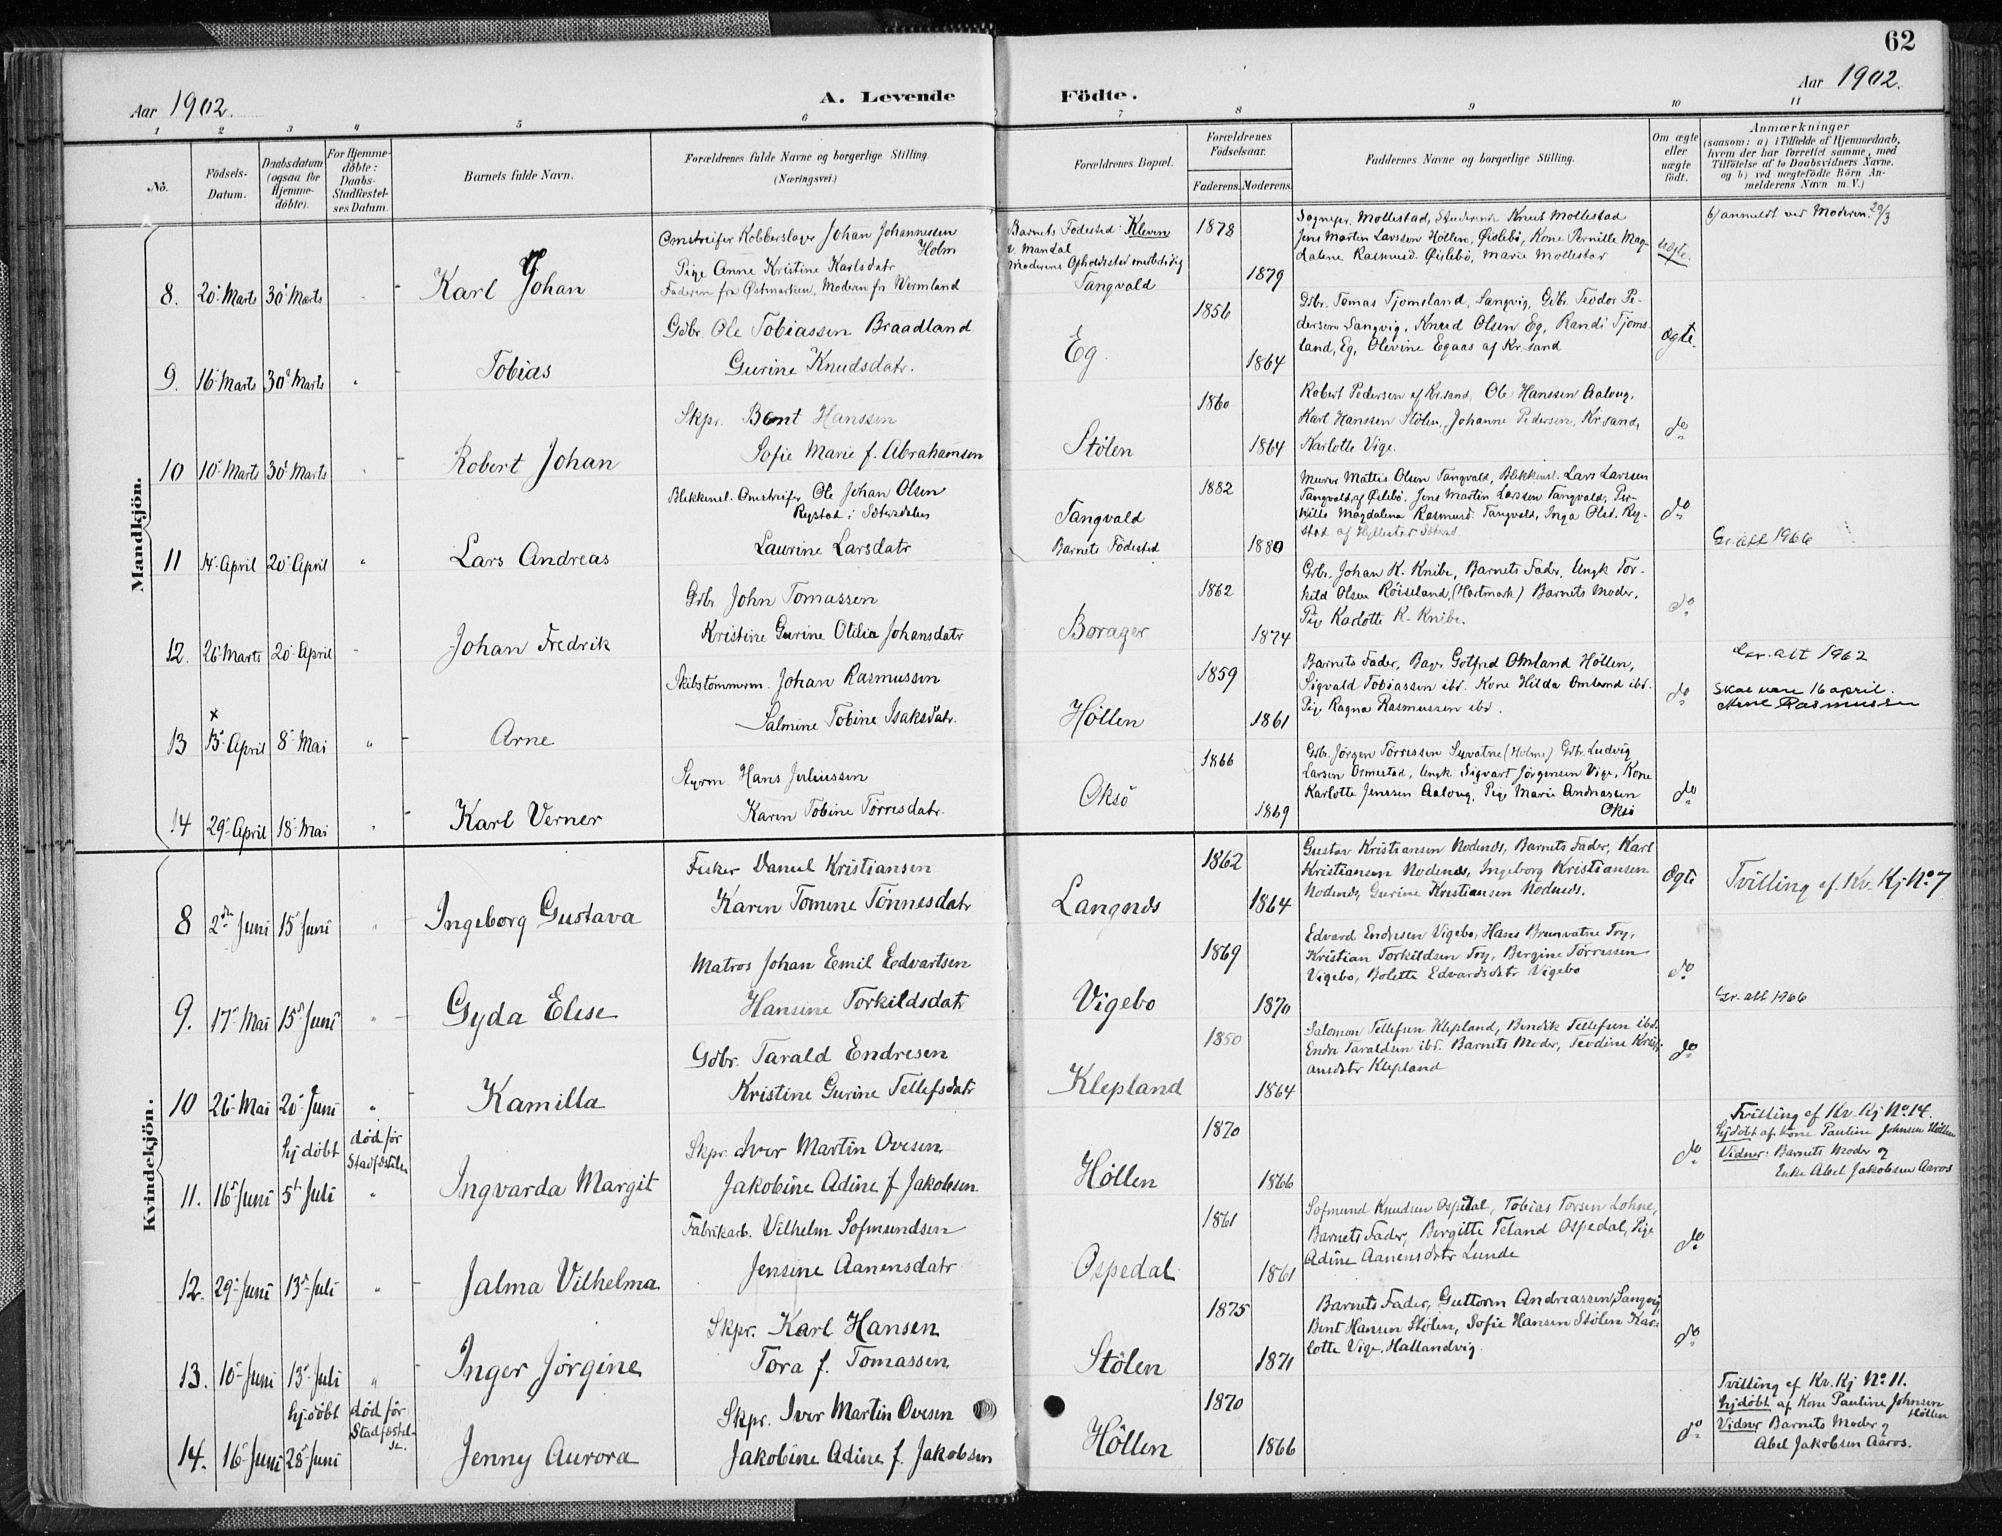 62
Aar 1902.
A. Levende Födte.
Aar 1902.
1 2 3 4 5 6 7 8 9 10 11
No.
Födsels-Datum.
Daabsdatum (ogsaa for Hjemme-döbte).
For Hjemme-döbte: Daabs-Stadfæstel-ses Datum.
Barnets fulde Navn.
Forældrenes fulde Navne og borgerlige Stilling. (Næringsvei.)
Forældrenes Bopæl.
Forældrenes Födselsaar.
Faderens. Moderens.
Faddernes Navne og borgerlige Stilling.
Om ægte eller uægte født.
Anmærkninger
(saasom: a) i Tilfælde af Hjemmedaab, hvem der har forrettet samme, med Tilföielse af to Daabsvidners Navne, og b) ved uægtefödte Börn An-melderens Navn m. V.)
Mandkjön.
8. 20 Marts 30 Marts
Karl Johan
Omstreifer Kobberslager Johan Johannessen Holm
Pige Anne Kristine Karlsdatr
Faderen fra Østmarken, Moderen fr Vermland
Barnets Födested: Kleven v. Mandal
Moderens Opholdssted
Tangvald
1878
1879
Sognepr. Mollestad, Studerende Knut Mollestad
Jens Martin Larssen Höllen, Øislebö, Kone Pernille Mag-
dalene Rasmusd. Øislebö, Marie Mollestad
uægte.
b/ anmeldt ved Moderen 29/3
9. 16 Marts 30 Marts
Tobias
Gdbr. Ole Tobiassen Braadland
Gurine Knudsdatr.
Eg.
1856
1864
Gdbr. Tomas Tjomsland, Langvig, Gdbr. Teodor Pe-
dersen Langvig, Knud Olsen Eg, Randi Tjoms-
land, Eg, Olevine Egaas af Kr.sand
Ægte.
10 10 Marts 30 Marts
Robert Johan
Skpr. Bent Hanssen
Sofie Marie f. Abrahamsen
Stölen
1860
1864
Robert Pedersen af Kr.sand, Ole Hanssen Aaloug,
Karl Hanssen Stölen, Johanne Pedersen, Kr.sand,
Karlotte Vige.
do
11 14 April 20 April
Lars Andreas
Blikkensl. Omstreifer Ole Johan Olsen
Rystad i Sætersdalen
Laurine Larsdatr
Tangvald
Barnets Födested
1882
1880
Murer Mattis Olsen Tangvald, Blikkensl. Lars Larssen
Tangvald, af Øislebö. Jens Martin Larssen Tangvald, Per-
nille Magdalena Rasmusd. Tangvald, Inga Olsd. Ry-
stad af Hyllestad
do
Gr. att 1966
12. 26 Marts 20 April
Johan Fredrik
Gdbr John Tomassen
Kristine Gurine Otilia Johansdatr
Borager
1862
1874
Gdbr. Johan K. Knibe, Barnets Fader, Ungk Tor-
kild Olsen Röiseland, (Hartmark) Barnets Moder,
Pige Karlotte K. Knibe.
do
13 x 15 April 8 Mai
Arne
Skibstömmerm. Johan Rasmussen
Salmine Tobine Isaksdatr.
Höllen
1859
1861
Barnets Fader, Bager Gotfred Omland Höllen,
Sigvald Tobiassen ibd. Kone Hilda Omland ibd.
Pige Ragna Rasmussen ibd.
do
Gr. att 1962
Skal være 16 april.
Arne Rasmussen
14 29 April 18 Mai
Karl Verner
Styrm Hans Juliussen
Karen Tobine Törresdatr.
Oksö
1866
1869
Gdbr. Jörgen Törressen Suvatne (Holme) Gdbr. Ludvig
Larsen Ormestad, Ungk Sigvart Jörgensen Vige, Kone
Karlotte Jenssen Aaloug, Pige Marie Andreassen
Oksö
do
Kvindekjön.
8 2den Juni 15 Juni
Ingeborg Gustava
Fisker Daniel Kristiansen
Karen Tomine Tönnesdatr
Langenes
1862
1864
Gustav Kristiansen Nodenes, Barnets Fader, Karl
Kristiansen Nodenes, Ingeborg Kristiansen
Nodenes, Gurine Kristiansen Nodenes.
Ægte
Tvilling af Kv. Kj No. 7
9. 17 Mai 15 Juni
Gyda Elise
Matros Johan Emil Edvartsen
Hansine Torkildsdatr
Vigebo
1869
1870
Edvard Endresen Vigebo, Hans Brunvatne Try,
Kristian Torkildsen Try, Bergine Törressen
Vigebo, Bolette Edvardsdtr Vigebo
do
Gr. att 1966
10 26 Mai 20 Juni
Kamilla
Gdbr. Tarald Endresen
Kristine Gurine Tellefsdatr
Klepland
1850
1864
Salomon Tellefsen Klepland, Bendik Tellefsen ibd.
Endre Taraldsen ibd. Barnets Moder, Teodine Kristi-
ansdtr Klepland
do
11. 16 Juni hjdöbt 5 Juli död för Stadfæstelse
Ingvarda Margit
Skpr. Iver Martin Ovesen
Jakobine Adine f Jakobsen
Höllen
1870
1866
do
Tvilling af Kv. Kj No. 14.
hjdöbt af Kone Pauline Johnsen Höllen
Vidner: Barnets Moder og
Enke Abel Jakobsen Aaros
12. 29 Juni 13 Juli
Jalma Vilhelma
Fabrikarb. Vilhelm Sofmundsen
Jensine Aanensdatr
Ospedal
1861
1861
Sofmund Knudsen Ospedal, Tobias Torsen Lohne,
Barnets Fader, Bergitte Teland Ospedal, Pige
Adine Aanensdatr Lunde
do
13. 10 Juni 13 Juli
Inger Jörgine
Skpr. Karl Hansen
Tora f. Tomassen
Stölen
1875
1871
Barnets Fader, Guttorm Andreassen, Langvig,
Bent Hansen Stölen, Sofie Hansen Stölen, Kar-
lotte Vige, Hallandvig.
do
14. 16 Juni hjdöbt 28 Juni död för Stadfæstel-se.
Jenny Aurora
Skpr. Iver Martin Ovesen
Jakobine Adine f. Jakobsen
Höllen
1870
1866
do
Tvilling af Kv. Kj No. 11.
hjdöbt af Kone Pauline Johnsen
Höllen
Vidner Barnets Moder og
Abel Jakobsen Aaros.